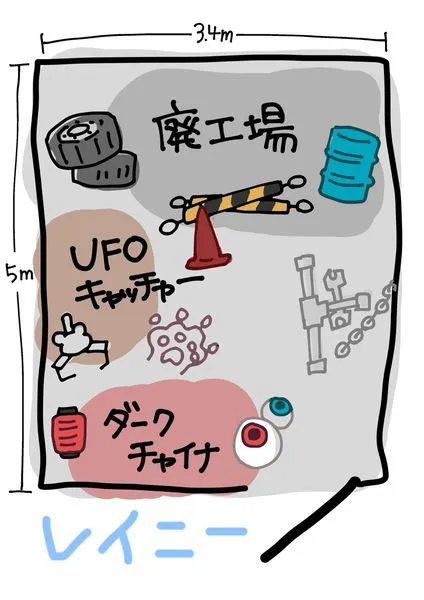 3.4m
廃工場
5m
UFO
キャッチャー
ダーク
チャイナ
レイニー